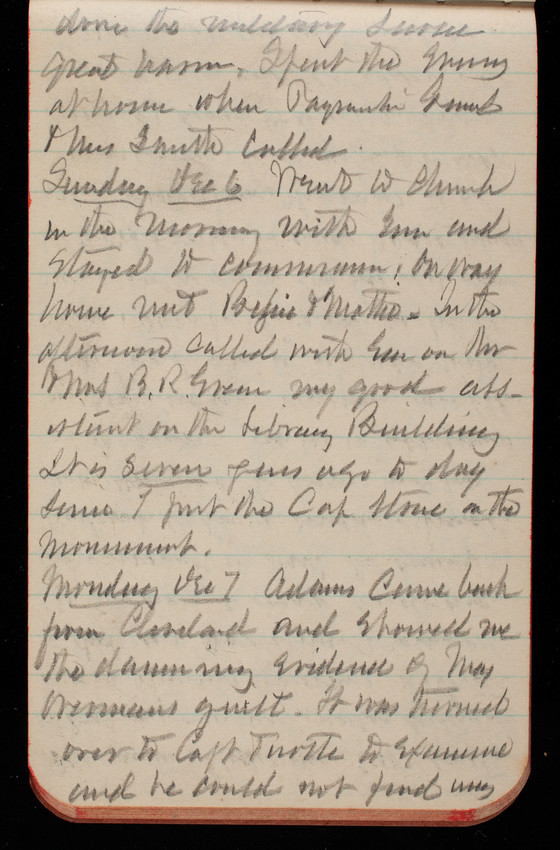 done the military service
great harm. Spent the Evening
at home when Paymaster
& Mrs Smith called.
Sunday Dec 6 Went to Church
in the Morning with Em and
Stayed to communion, On way
home met Bessie & Mattie. In the
afternoon called with Em on Mr
& Mrs B. R. Green my good ass-
istant on the Library Building
It is seven years ago to day
since I put the Cap Stone on the
Monument.
Monday Dec 7 Adams Came back
from Cleveland and showed me
the damning Evidence of Maj
Overmans guilt. It was turned
over to Capt Tuttle to Examine
and he could not find any